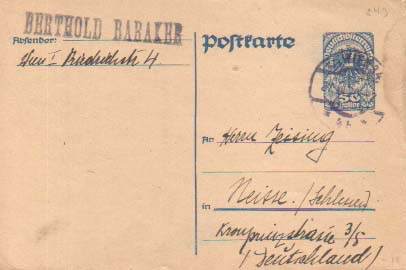 BERTHOLD BABAKER
Absender:
Wien I Friedrichstr 4
Postkarte
Deutschösterreich
WIEN
50
Heller
243
An
Herrn Zeising
in
Neisse / Schlesien
Kronprinzstrasse 3/5
/ Deutschland /